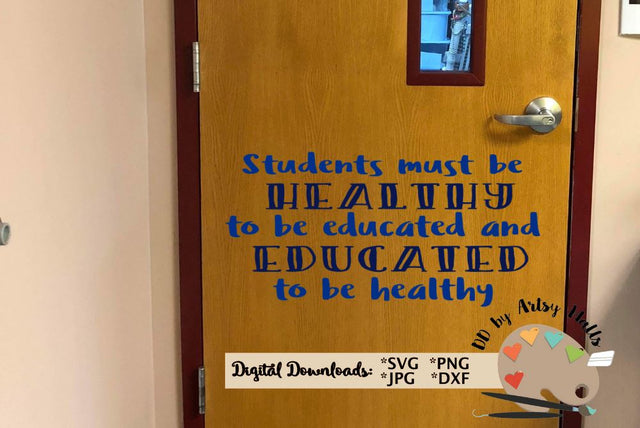 Students must be
HEALTHY
to be educated and
EDUCATED
to be healthy
DD by Artsy Halls
Digital Downloads: *SVG *PNG
*JPG *DXF